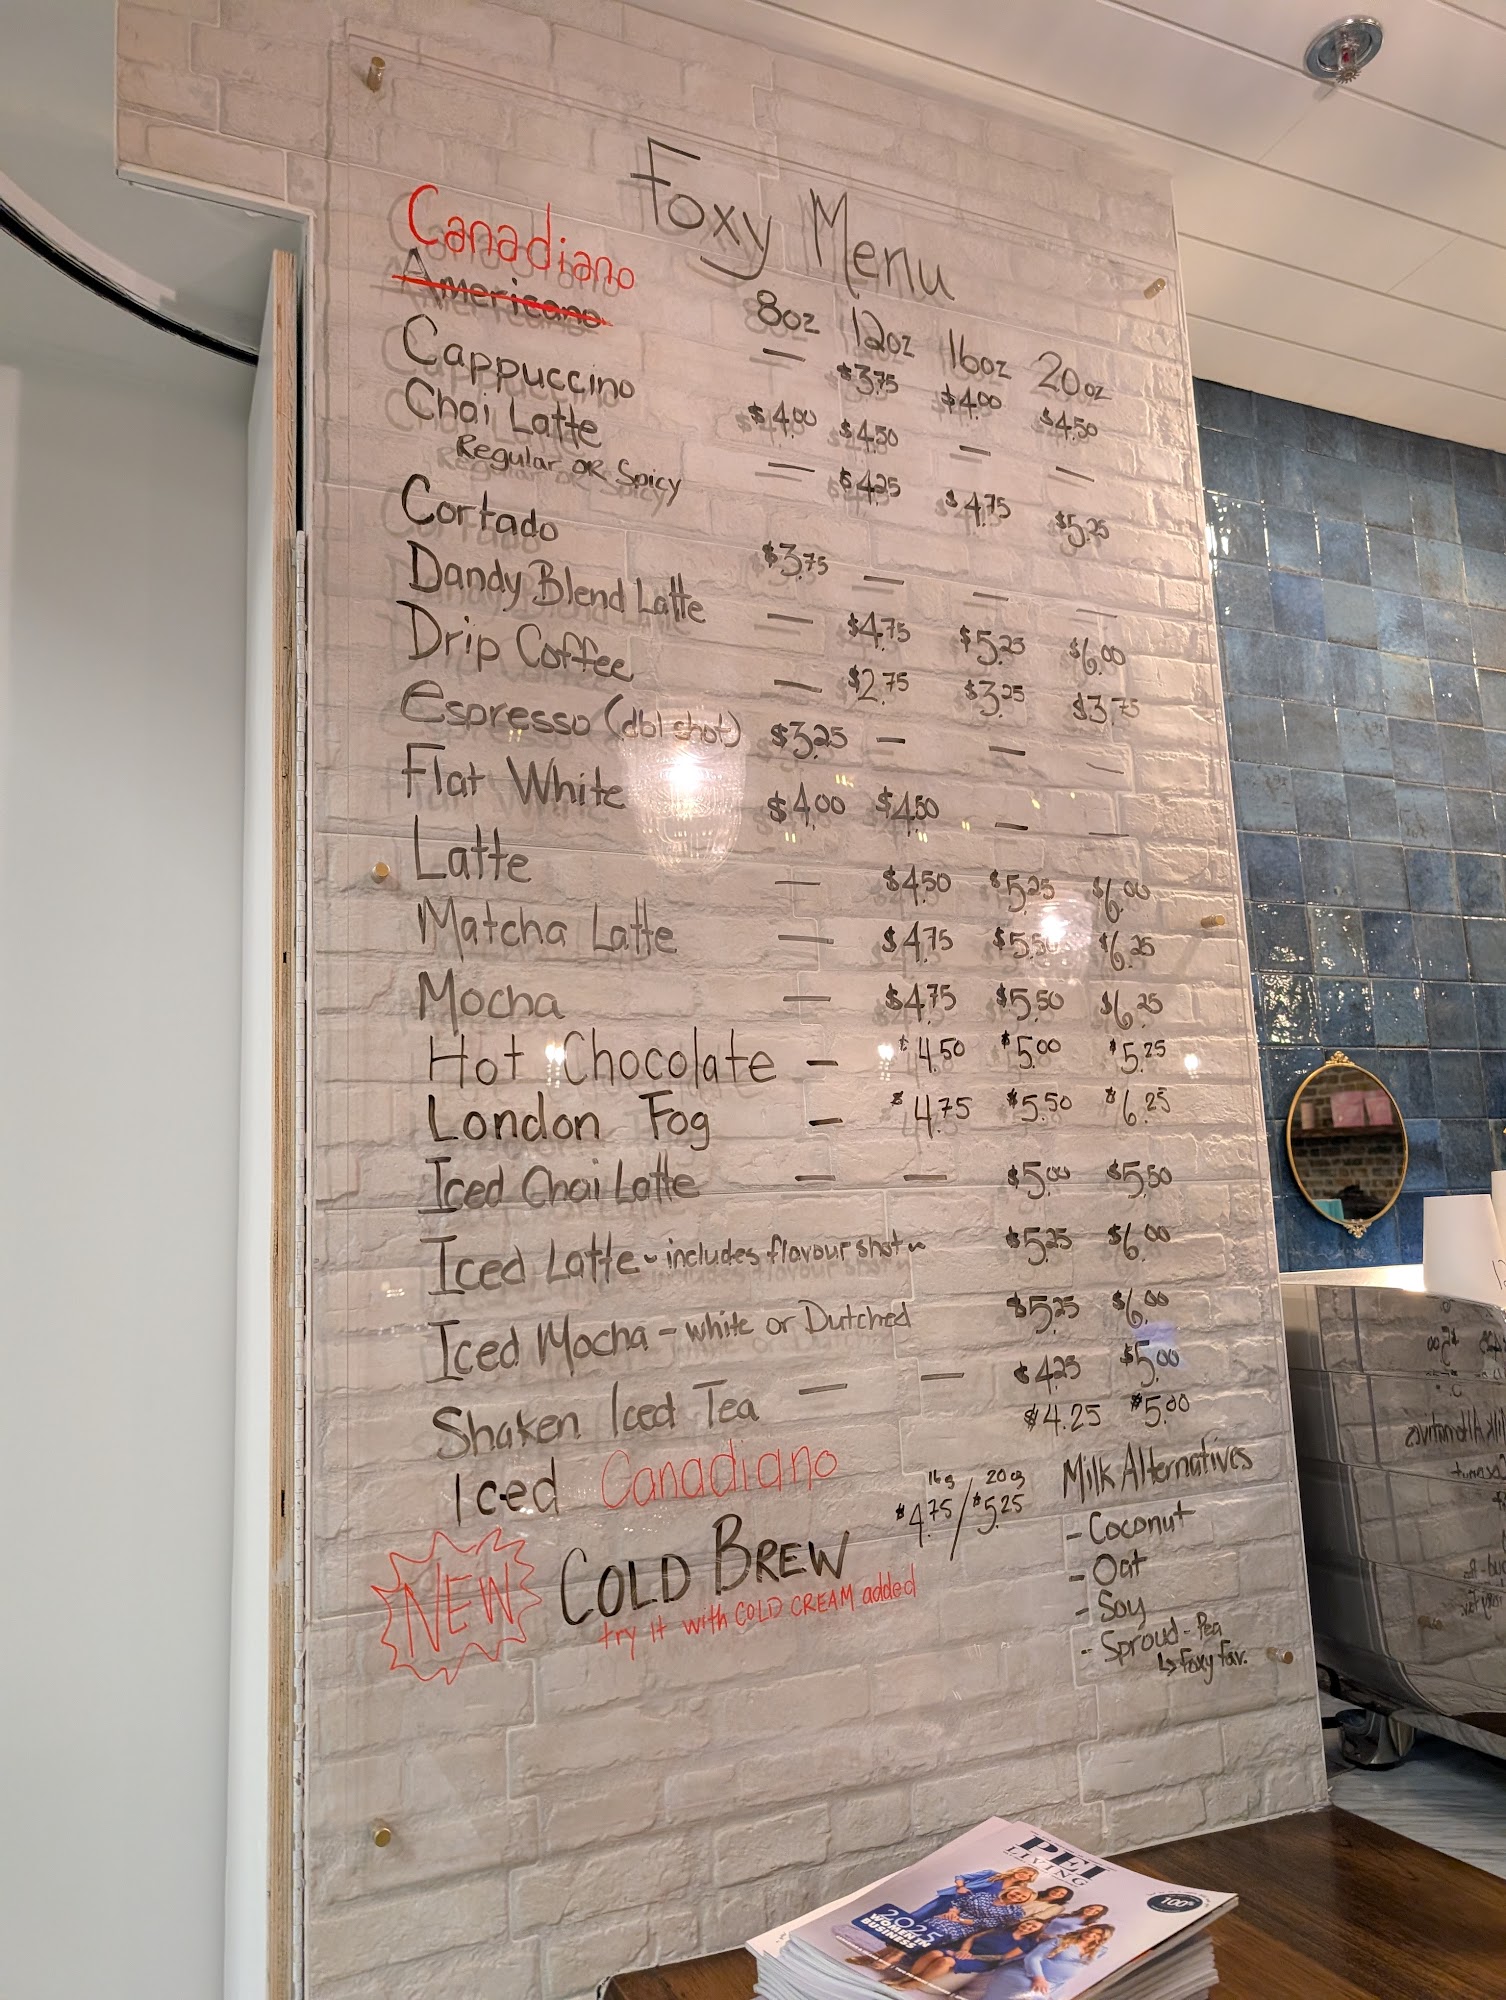 Foxy Menu
Canadiano
Americano
8oz 12oz 16oz 20oz
— $3.75 $4.00 $4.50
Cappuccino $4.00 $4.50 — —
Chai Latte — $4.25 $4.75 $5.25
Regular OR Spicy
Cortado $3.75 — — —
Dandy Blend Latte — $4.75 $5.25 $6.00
Drip Coffee — $2.75 $3.25 $3.75
Espresso (dbl shot) $3.25 — — —
Flat White $4.00 $4.50 — —
Latte — $4.50 $5.25 $6.00
Matcha Latte — $4.75 $5.50 $6.25
Mocha — $4.75 $5.50 $6.25
Hot Chocolate — $4.50 $5.00 $5.25
London Fog — $4.75 $5.50 $6.25
Iced Chai Latte — — $5.00 $5.50
Iced Latte ~ includes flavour shot ~ $5.25 $6.00
Iced Mocha - white or Dutched $5.25 $6.00
Shaken Iced Tea — — $4.25 $5.00
Iced Canadiano $4.25 $5.00
NEW COLD BREW 16oz $4.75 / 20oz $5.25
try it with COLD CREAM added
Milk Alternatives
- Coconut
- Oat
- Soy
- Sproud - Pea
↳ Foxy Fav.
PEI
LIVING
100%
2025
WOMEN IN
BUSINESS